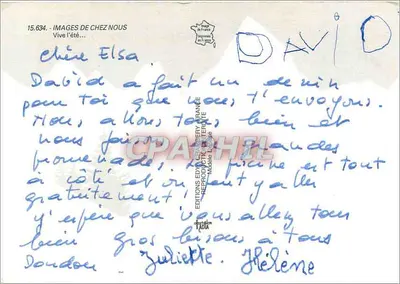 15.634. - IMAGES DE CHEZ NOUS
Vive l'été...
DAVID
Chère Elsa
David a fait un dessin
pour toi que nous t'envoyons.
Nous allons tous bien et
nous faisons de grandes
promenades. La piscine est tout
à côté et on peut y aller
gratuitement!
j'espère que vous allez tous
bien gros bisous à tous
Doudou. Juliette. Hélène
CPARPHIL